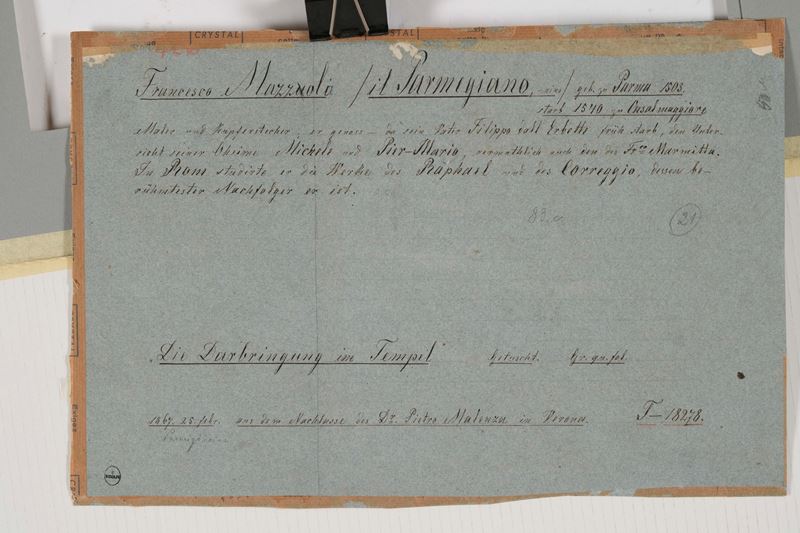 CRYSTAL
Francesco Mazzuola /il Parmigiano, /geb. zu Parma 1503,
starb 1540 zu Casalmaggiore
Maler und Kupferstecher; er genoss – da sein Vater Filippo dall Erbette früh starb, den Unter-
richt seiner Oheime Michele und Pier-Mario, vermuthlich auch den des Marmitta.
In Rom studirte er die Werke des Raphael und des Correggio, dessen be-
rühmtester Nachfolger er ist.
21
„Die Darbringung im Tempel" Getuscht. Gr. qu. fol.
1867. 25. febr. aus dem Nachlasse des Dr. Pietro Malenza in Verona. F–18278.